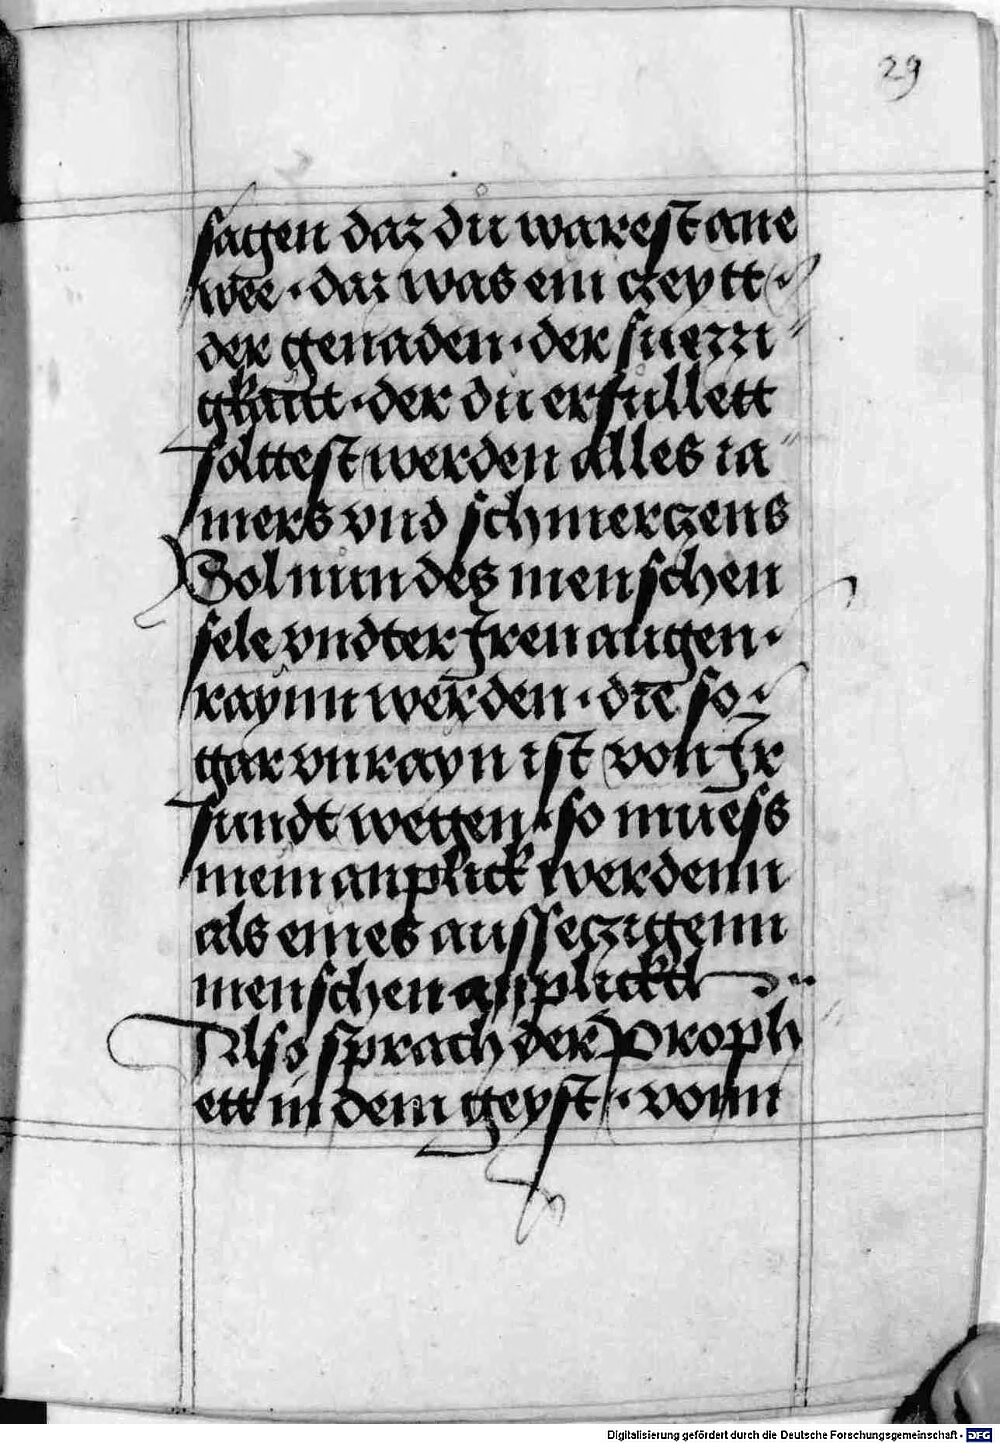 29
sagen daz dú warest ane
wee · daz was ein czeytt ·
der genaden · der suezzi
gkaitt · der dú erfúllett
solttest werden alles ia
mers vnd schmerczens
Sol nún des menschen
sele vndter Jren augen ·
raynn werden · die so
gar vnrayn ist von Jr
sundt wegen · so muess
mein anplick werdenn
als eines ausseczigenn
menschen anplickch
Also sprach der Proph
ett in dem geyst · vonn
Digitalisierung gefördert durch die Deutsche Forschungsgemeinschaft - DFG